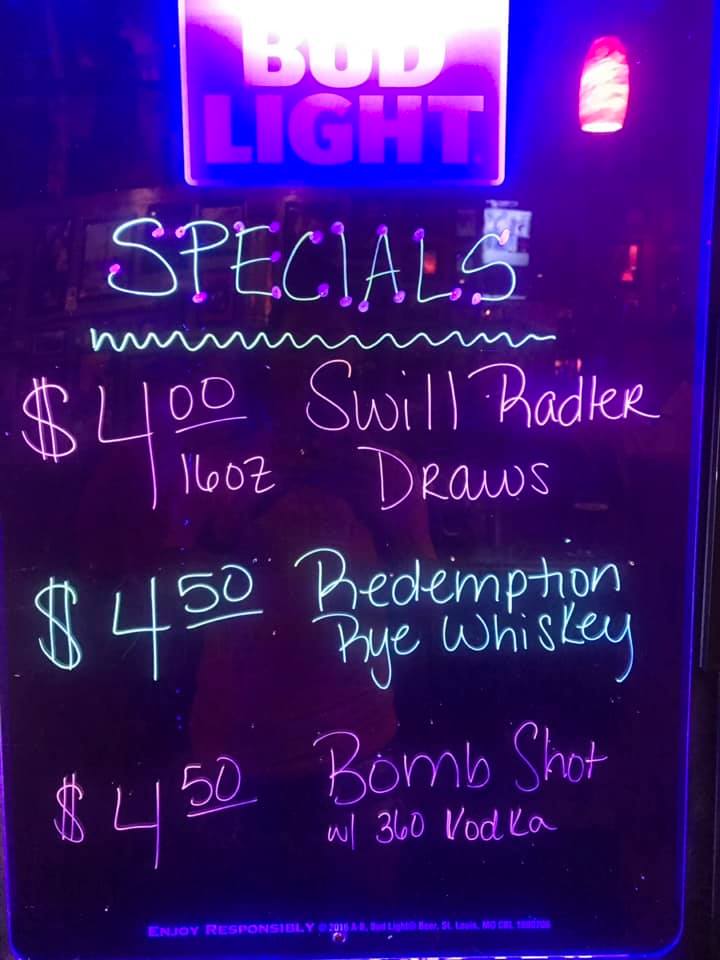 BUD
LIGHT
SPECIALS
$4.00 Swill Radler
16oz Draws
$4.50 Redemption
Rye Whiskey
$4.50 Bomb Shot
w/ 360 Vodka
ENJOY RESPONSIBLY © 2016 A-B, Bud Light® Beer, St. Louis, MO